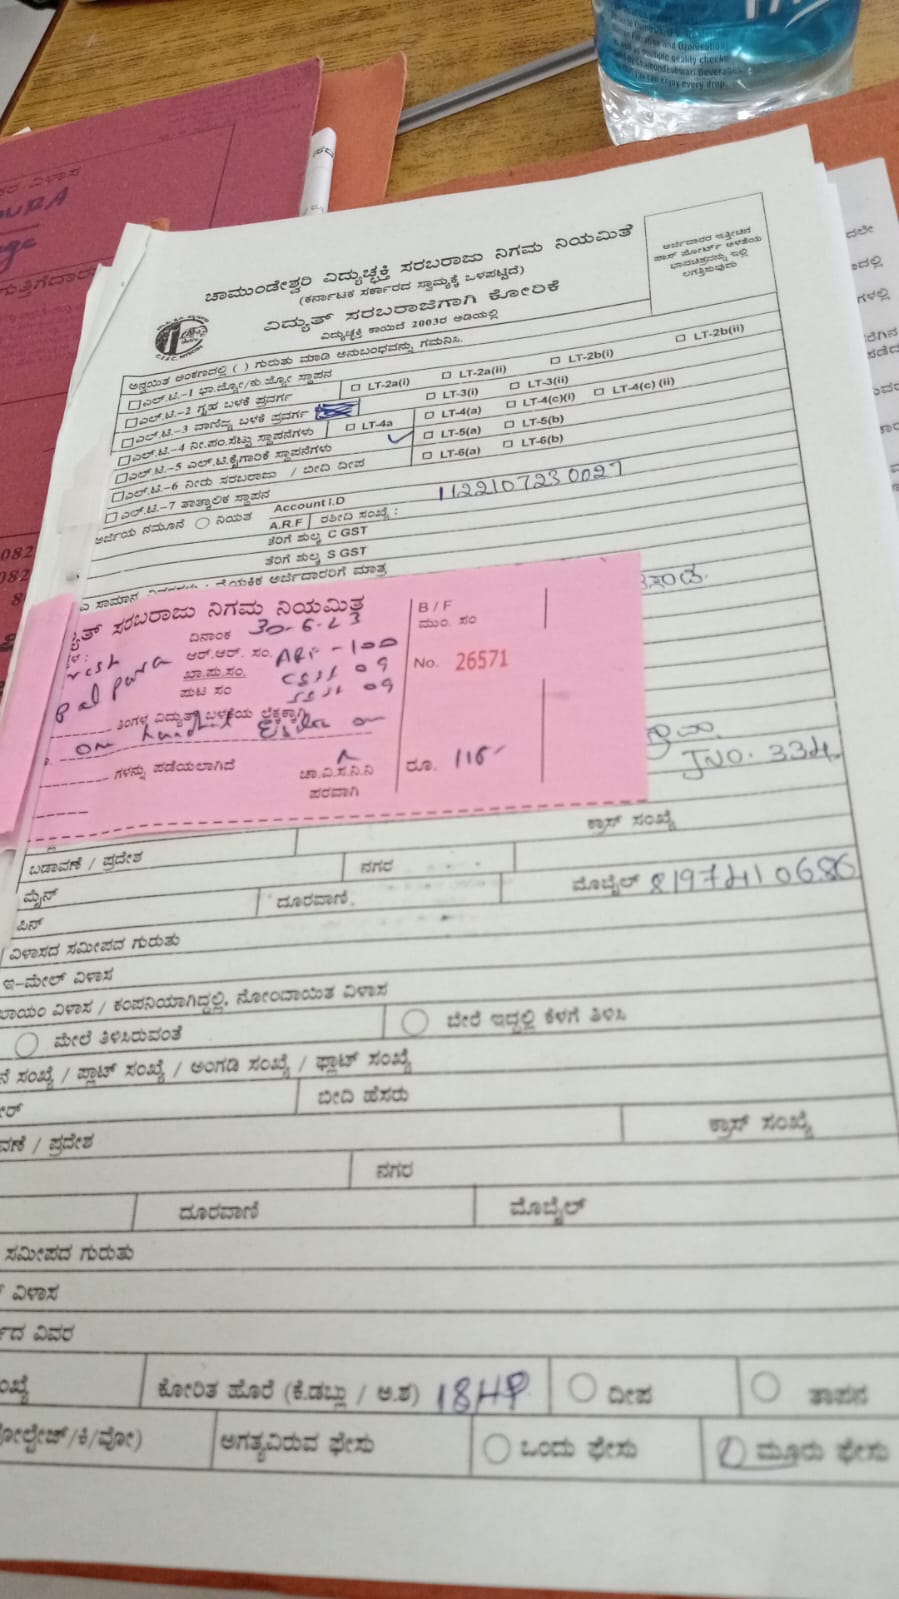 Ozonisation
multiple quality checks
Chamundeshwari Beverages
enjoy every drop
ರ ವಿಳಾಸ
ಗುತ್ತಿಗೆದಾರ
ಚಾಮುಂಡೇಶ್ವರಿ ವಿದ್ಯುಚ್ಛಕ್ತಿ ಸರಬರಾಜು ನಿಗಮ ನಿಯಮಿತ
(ಕರ್ನಾಟಕ ಸರ್ಕಾರದ ಸ್ವಾಮ್ಯಕ್ಕೆ ಒಳಪಟ್ಟಿದೆ)
ವಿದ್ಯುತ್ ಸರಬರಾಜಿಗಾಗಿ ಕೋರಿಕೆ
ವಿದ್ಯುಚ್ಛಕ್ತಿ ಕಾಯಿದೆ 2003ರ ಅಡಿಯಲ್ಲಿ
ಅರ್ಜಿದಾರರ ಇತ್ತೀಚಿನ
ಪಾಸ್ ಪೋರ್ಟ್ ಅಳತೆಯ
ಭಾವಚಿತ್ರವನ್ನು ಇಲ್ಲಿ
ಲಗತ್ತಿಸುವುದು
ಅನ್ವಯಿತ ಅಂಕಣದಲ್ಲಿ ( ) ಗುರುತು ಮಾಡಿ ಅನುಬಂಧವನ್ನು ಗಮನಿಸಿ.
ಎಲ್.ಟಿ.-1 ಭಾ.ಜ್ಯೋ/ಕು.ಜ್ಯೋ ಸ್ಥಾಪನ
ಎಲ್.ಟಿ.-2 ಗೃಹ ಬಳಕೆ ಪ್ರವರ್ಗ LT-2a(i) LT-2a(ii) LT-2b(i) LT-2b(ii)
ಎಲ್.ಟಿ.-3 ವಾಣಿಜ್ಯ ಬಳಕೆ ಪ್ರವರ್ಗ LT-3(i) LT-3(ii)
ಎಲ್.ಟಿ.-4 ನೀ.ಪಂ.ಸೆಟ್ಟು ಸ್ಥಾಪನೆಗಳು LT-4a LT-4(a) LT-4(c)(i) LT-4(c) (ii)
ಎಲ್.ಟಿ.-5 ಎಲ್.ಟಿ.ಕೈಗಾರಿಕೆ ಸ್ಥಾಪನೆಗಳು LT-5(a) LT-5(b)
ಎಲ್.ಟಿ.-6 ನೀರು ಸರಬರಾಜು / ಬೀದಿ ದೀಪ LT-6(a) LT-6(b)
ಎಲ್.ಟಿ.-7 ತಾತ್ಕಾಲಿಕ ಸ್ಥಾಪನ
ಅರ್ಜಿಯ ನಮೂನೆ ನಿಯತ Account I.D 1122107230027
A.R.F ರಶೀದಿ ಸಂಖ್ಯೆ :
ತೆರಿಗೆ ಶುಲ್ಕ C GST
ತೆರಿಗೆ ಶುಲ್ಕ S GST
ವೈಯಕ್ತಿಕ ಅರ್ಜಿದಾರರಿಗೆ ಮಾತ್ರ
ತ್ ಸರಬರಾಜು ನಿಗಮ ನಿಯಮಿತ
ದಿನಾಂಕ 30-6-23
B / F
ಮುಂ. ಸಂ
ಆರ್.ಆರ್. ಸಂ. ARF-100
ಖಾ.ಪು.ಸಂ. 09
ಪುಟ ಸಂ 09
No. 26571
ತಿಂಗಳ ವಿದ್ಯುತ್ ಬಳಕೆಯ ಲೆಕ್ಕಕ್ಕಾಗಿ
ಗಳನ್ನು ಪಡೆಯಲಾಗಿದೆ
ಚಾ.ವಿ.ಸ.ನಿ.ನಿ
ಪರವಾಗಿ
ರೂ. 118
JNO. 334
ಕ್ರಾಸ್ ಸಂಖ್ಯೆ
ಬಡಾವಣೆ / ಪ್ರದೇಶ ನಗರ
ಮೈನ್ ದೂರವಾಣಿ. ಮೊಬೈಲ್ 8197410686
ಪಿನ್
ವಿಳಾಸದ ಸಮೀಪದ ಗುರುತು
ಇ-ಮೇಲ್ ವಿಳಾಸ
ಖಾಯಂ ವಿಳಾಸ / ಕಂಪನಿಯಾಗಿದ್ದಲ್ಲಿ, ನೋಂದಾಯಿತ ವಿಳಾಸ
ಮೇಲೆ ತಿಳಿಸಿರುವಂತೆ ಬೇರೆ ಇದ್ದಲ್ಲಿ ಕೆಳಗೆ ತಿಳಿಸಿ
ನೆ ಸಂಖ್ಯೆ / ಪ್ಲಾಟ್ ಸಂಖ್ಯೆ / ಅಂಗಡಿ ಸಂಖ್ಯೆ / ಫ್ಲಾಟ್ ಸಂಖ್ಯೆ
ಬೀದಿ ಹೆಸರು
ವಣೆ / ಪ್ರದೇಶ ಕ್ರಾಸ್ ಸಂಖ್ಯೆ
ನಗರ
ದೂರವಾಣಿ ಮೊಬೈಲ್
ಸಮೀಪದ ಗುರುತು
ವಿಳಾಸ
ದ ವಿವರ
ಂಖ್ಯೆ ಕೋರಿತ ಹೊರೆ (ಕೆ.ಡಬ್ಲು / ಅ.ಶ) 18HP ದೀಪ ತಾಪನ
ೋಲ್ಟೇಜ್/ಕಿ/ವೋ) ಅಗತ್ಯವಿರುವ ಫೇಸು ಒಂದು ಫೇಸು ಮೂರು ಫೇಸು